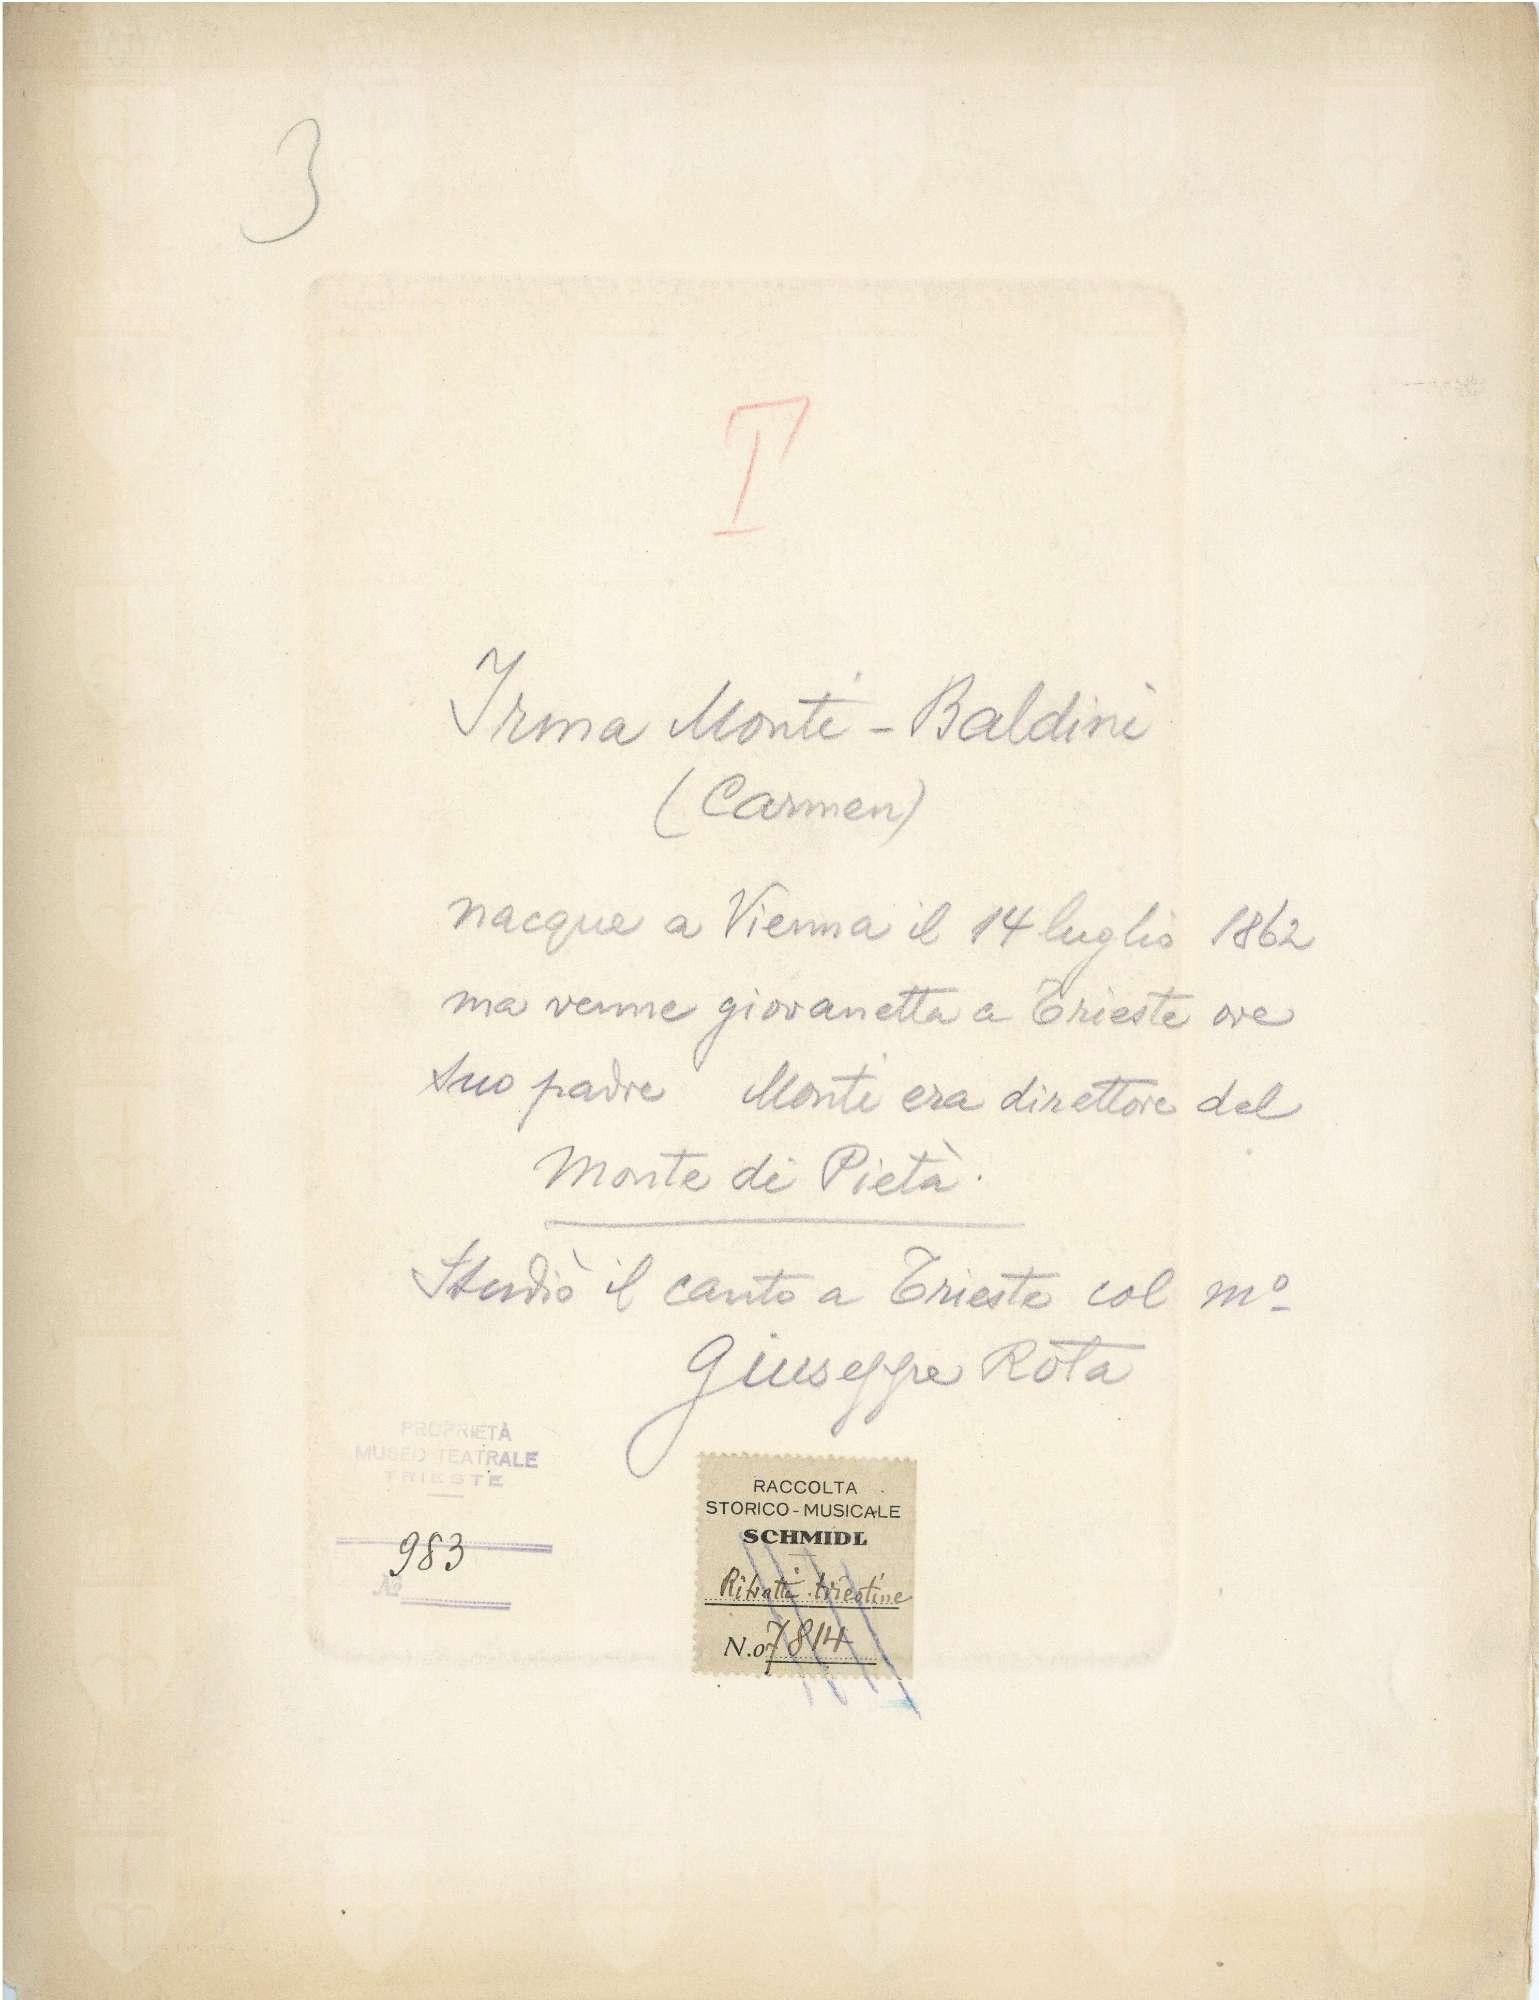 3
I
Irma Monti-Baldini
(Carmen)
nacque a Vienna il 14 luglio 1862
ma venne giovanetta a Trieste ove
suo padre Monti era direttore del
Monte di Pietà.
Studiò il canto a Trieste col mº
Giuseppe Rota
PROPRIETÀ
MUSEO TEATRALE
TRIESTE
983
Nº
RACCOLTA
STORICO-MUSICALE
SCHMIDL
Ritratti triestine
N.o 7814